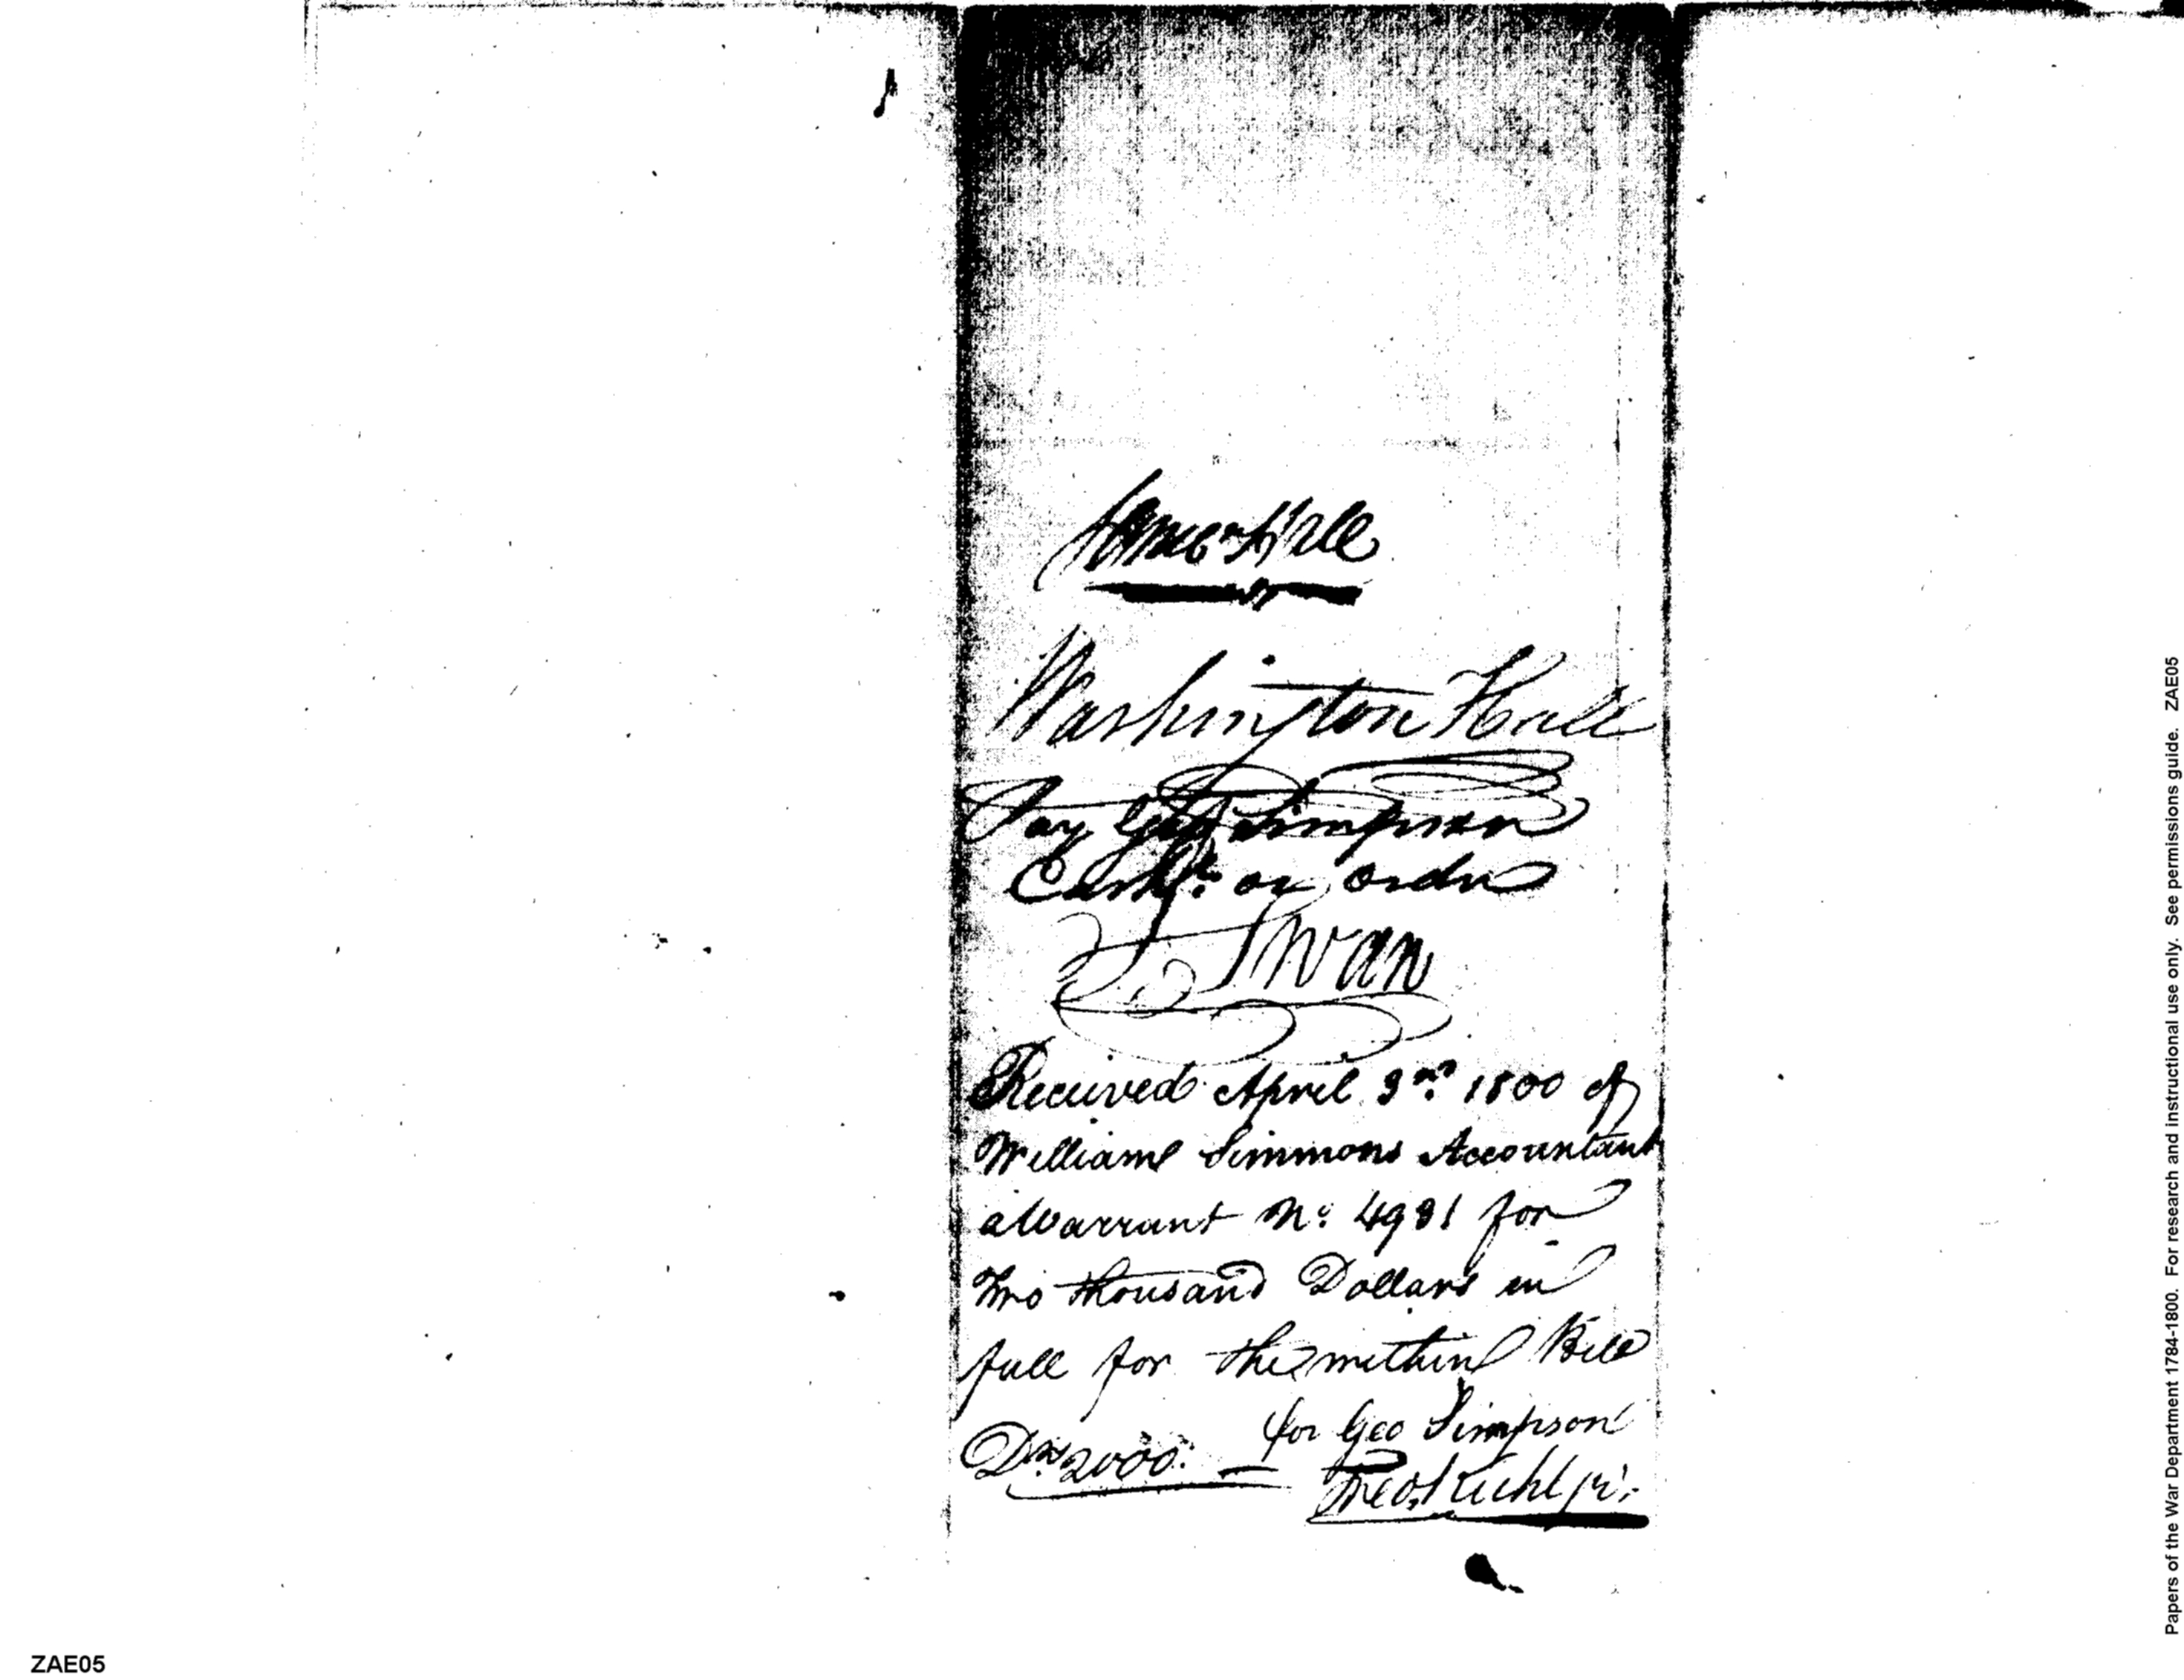 James Hall
Washington Hall
Pay Geo Simpson
Cashr. or order
Swan
Received April 3rd. 1800 of
William Simmons Accountant
a Warrant No. 4981 for
Two thousand Dollars in
full for the within Bill
for Geo Simpson
Drs 2000.
Kuhl jr.
Papers of the War Department 1784-1800. For research and instructional use only. See permissions guide. ZAE05
ZAE05